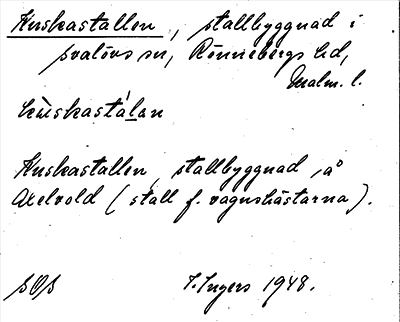 Kuskastallen, stallbyggnad i
Svalövs sn, Rönnebergs hd,
Malm. l.
kùskastálan
Kuskastallen, stallbyggnad på
Axelvold (stall f. vagnshästarna).
SOS
I. Ingers 1948.